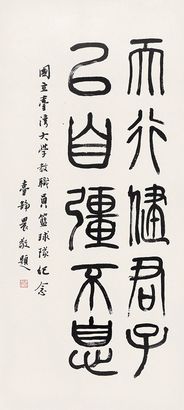 天行健君子
以自彊不息
國立臺灣大学教職員籃球隊紀念
臺静農敬題